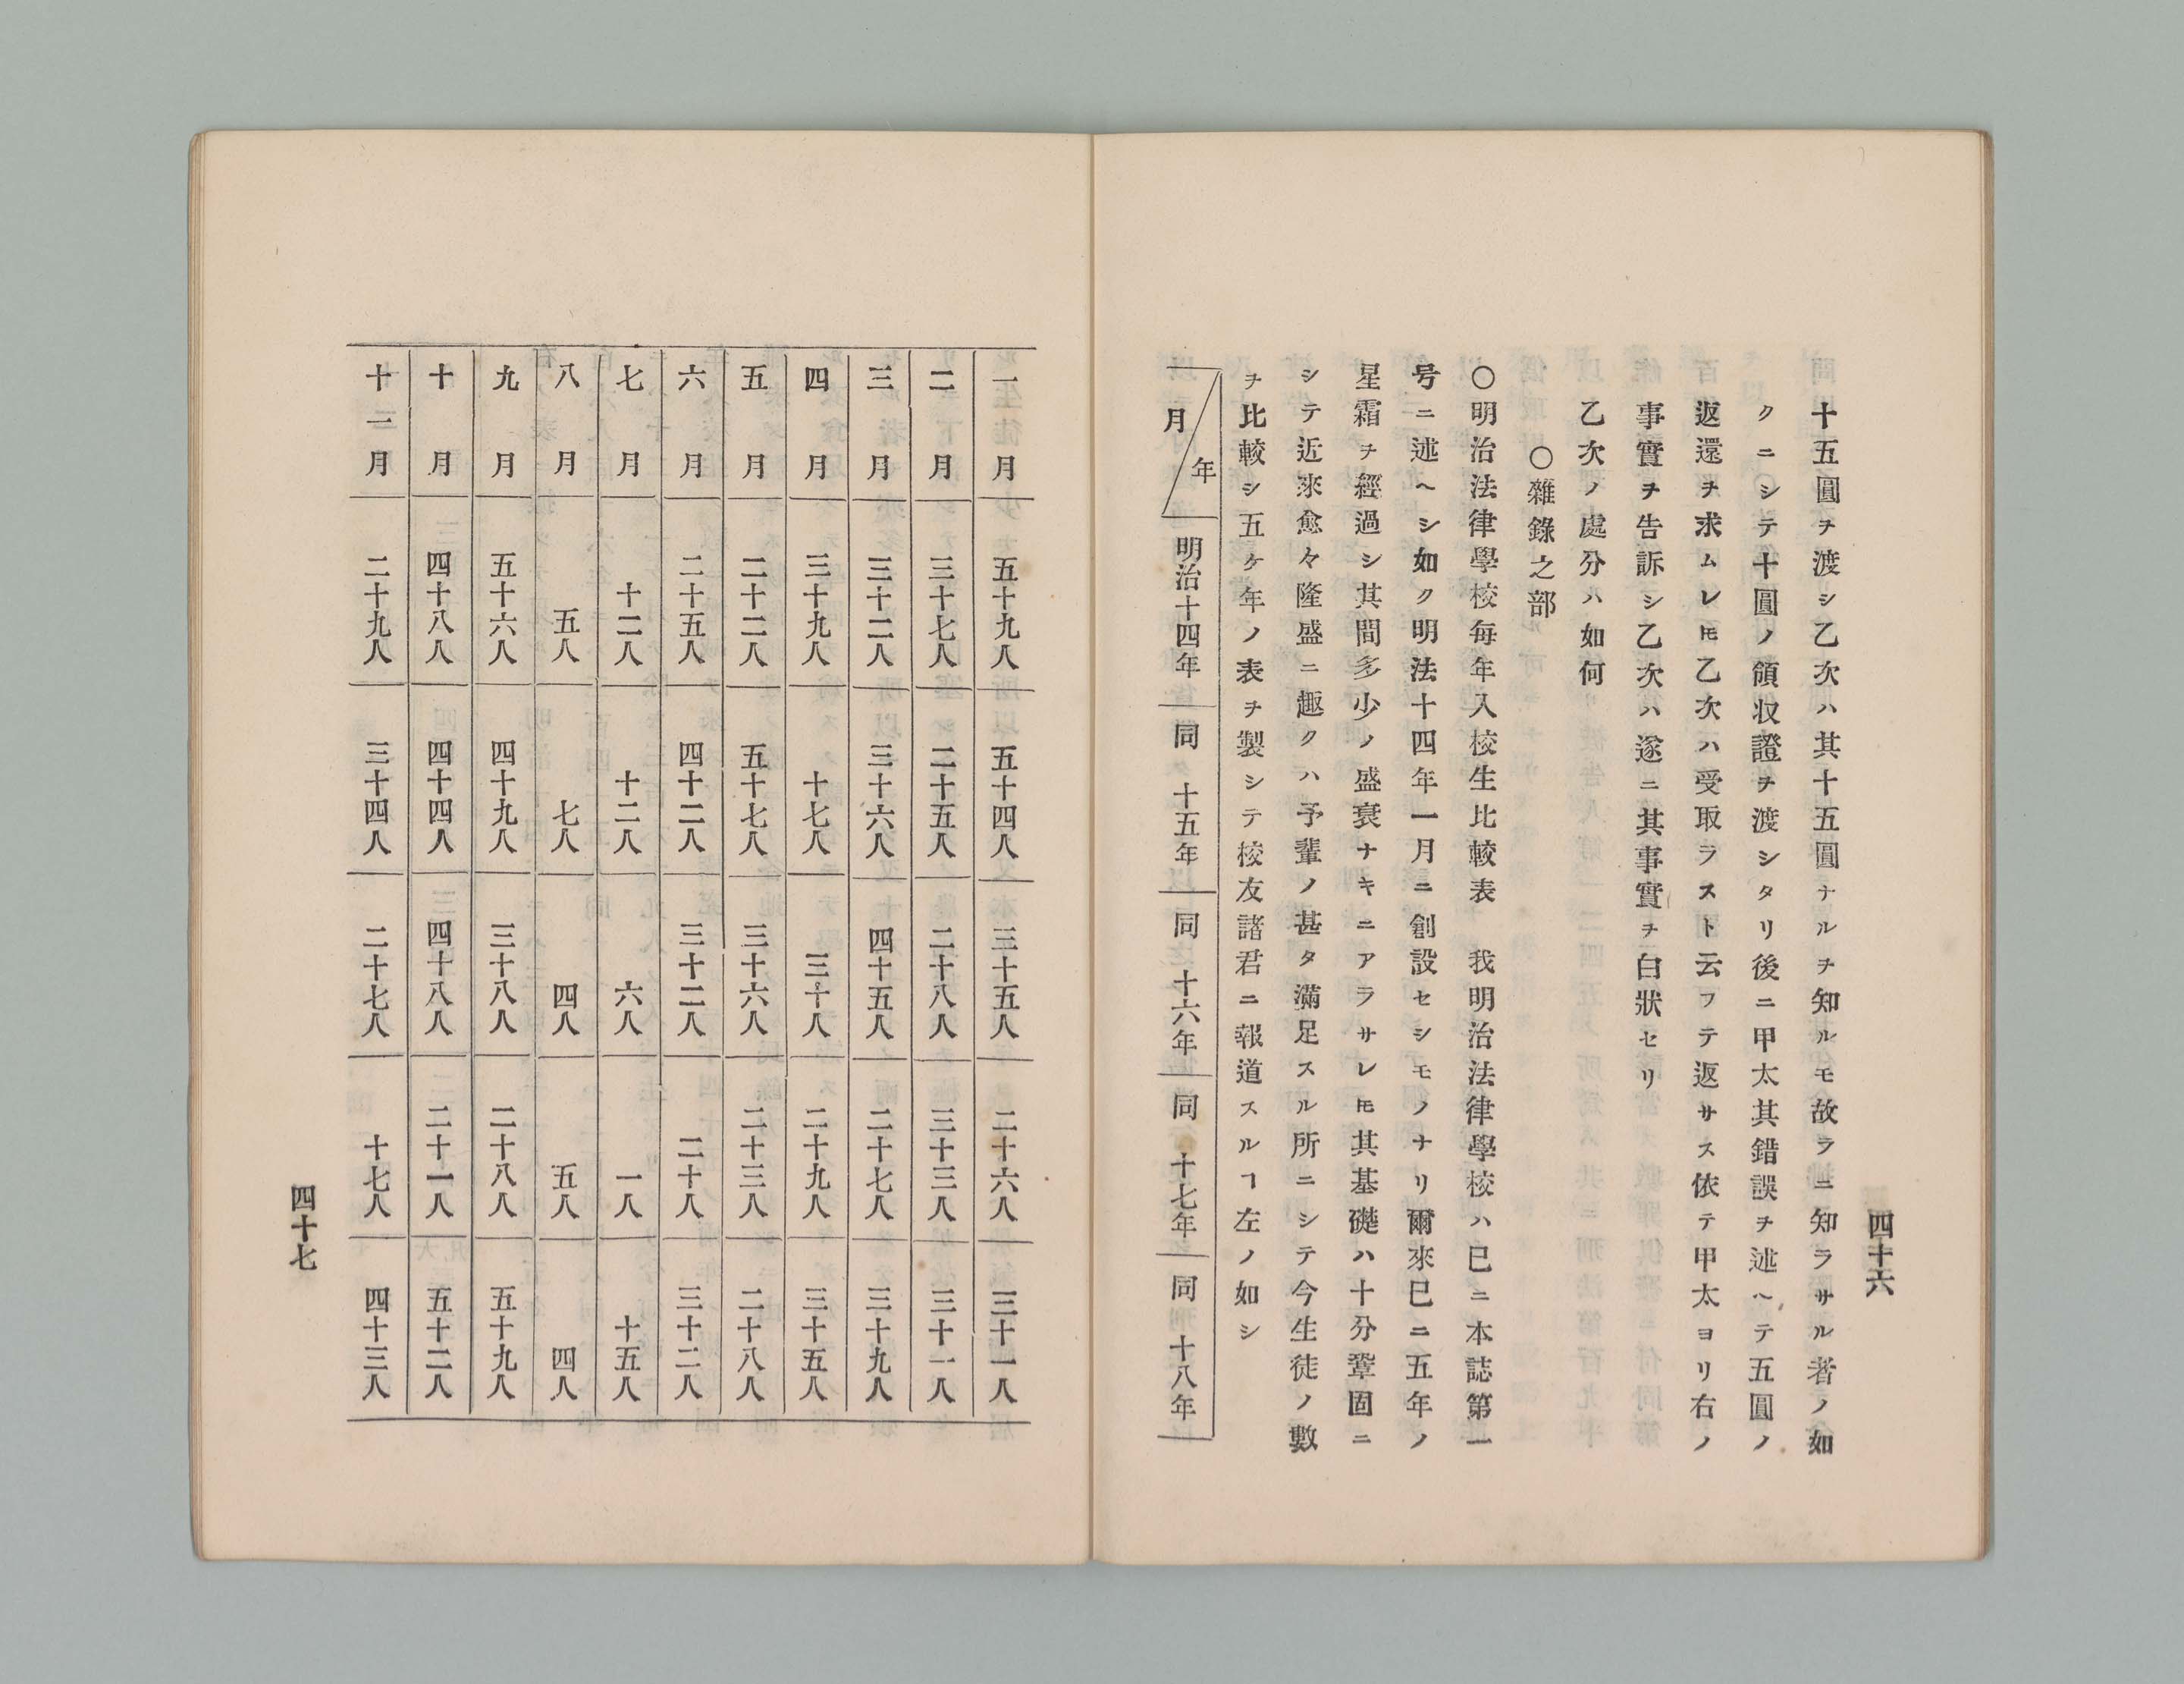 四十六
十五圓ヲ渡シ乙次ハ其十五圓ナルヲ知ルモ故ラニ知ラサル者ノ如
クニシテ十圓ノ領収證ヲ渡シタリ後ニ甲太其錯誤ヲ述ヘテ五圓ノ
返還ヲ求ムレ𪜈乙次ハ受取ラスト云フテ返サス依テ甲太ヨリ右ノ
事實ヲ告訴シ乙次ハ遂ニ其事實ヲ白狀セリ
乙次ノ處分ハ如何
〇雜錄之部
〇明治法律學校每年入校生比較表　我明治法律學校ハ已ニ本誌第一
号ニ述ヘシ如ク明法十四年一月ニ創設セシモノナリ爾來巳ニ五年ノ
星霜ヲ經過シ其間多少ノ盛衰ナキニアラサレ𪜈其基礎ハ十分鞏固ニ
シテ近來愈々隆盛ニ趣クハ予輩ノ甚タ滿足スル所ニシテ今生徒ノ數
ヲ比較シ五ケ年ノ表ヲ製シテ校友諸君ニ報道スルヿ左ノ如シ
月　年　明治十四年　同　十五年　同　十六年　同　十七年　同　十八年
一月　五十九人　五十四人　三十五人　二十六人　三十一人
二月　三十七人　二十五人　二十八人　三十三人　三十一人
三月　三十二人　三十六人　四十五人　二十七人　三十九人
四月　三十九人　十七人　三十人　二十九人　三十五人
五月　二十二人　五十七人　三十六人　二十三人　二十八人
六月　二十五人　四十二人　三十二人　二十人　三十二人
七月　十二人　十二人　六人　一人　十五人
八月　五人　七人　四人　五人　四人
九月　五十六人　四十九人　三十八人　二十八人　五十九人
十月　四十八人　四十四人　四十八人　二十一人　五十二人
十一月　二十九人　三十四人　二十七人　十七人　四十三人
四十七